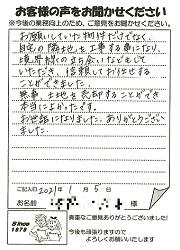 お客様の声をお聞かせください
※今後の業務向上のため、ご意見をお聞かせください。
お願いしていた物件だけでなく、
自宅の隣土地も工事する事になり、
境界線の立ち会いなどもして
いただき、信頼してお任せする
ことができました。
無事、土地も売却することができ
本当によかったです。
お世話になりました。ありがとうござい
ました。
ご記入日 2021年1月5日
お名前 様
Since 1979
貴重なご意見ありがとうございました!
今後も頑張りますので
よろしくお願いいたします